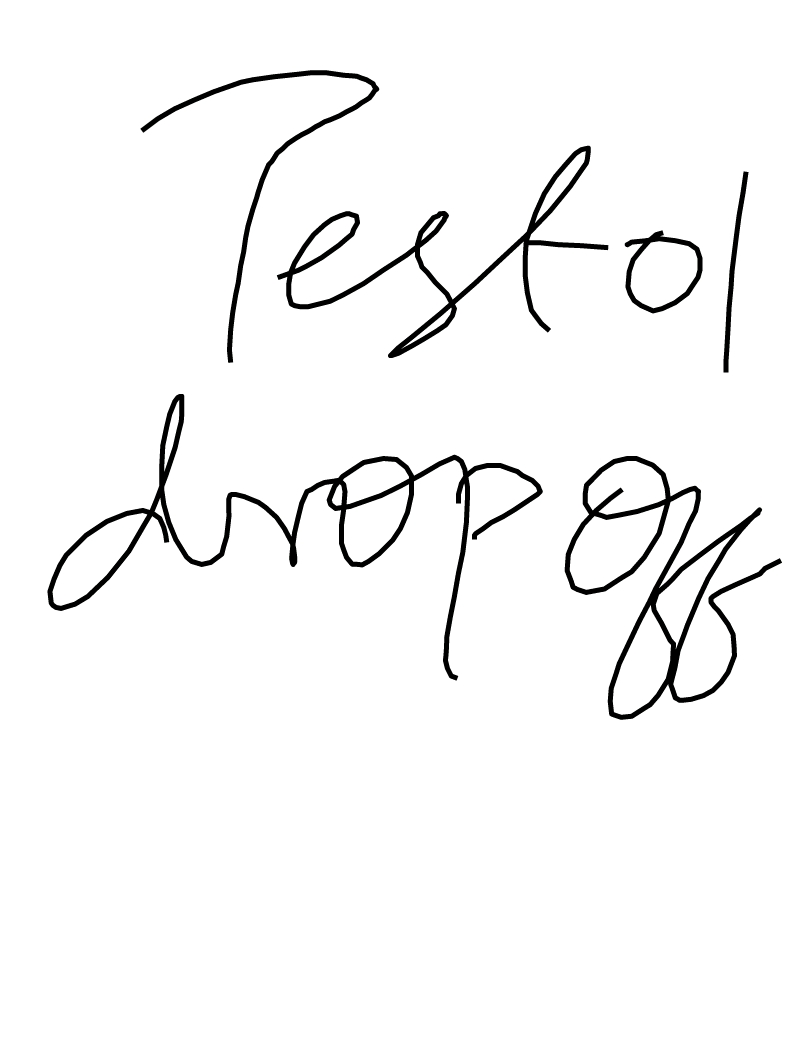 Test 01
drop off